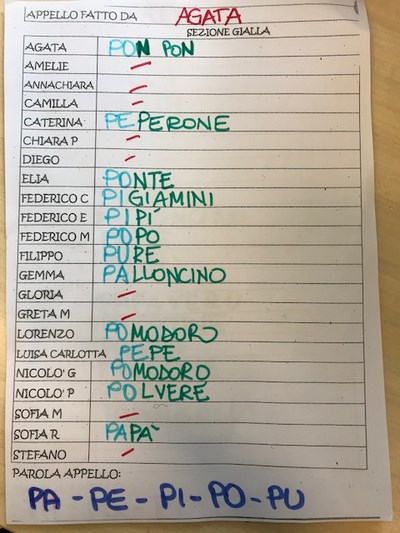 APPELLO FATTO DA AGATA
SEZIONE GIALLA
AGATA PON PON
AMELIE –
ANNACHIARA –
CAMILLA –
CATERINA PEPERONE
CHIARA P –
DIEGO –
ELIA PONTE
FEDERICO C PIGIAMINI
FEDERICO E PIPI'
FEDERICO M POPO
FILIPPO PURE
GEMMA PALLONCINO
GLORIA –
GRETA M –
LORENZO POMODORO
LUISA CARLOTTA PEPE
NICOLO' G POMODORO
NICOLO' P POLVERE
SOFIA M –
SOFIA R PAPÀ
STEFANO –
PAROLA APPELLO:
PA - PE - PI - PO - PU